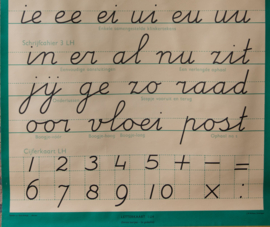 ie ee ei ui eu uu
Schrijfkaart 3 LH
in er al nu zit
jij ge zo raad
oor vloei post
Cijferkaart LH
1 2 3 4 5 + - =
6 7 8 9 10 × :